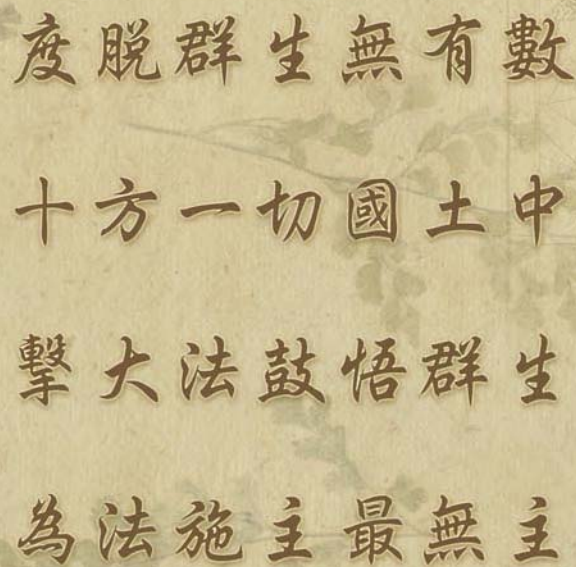 度脱群生無有數
十方一切國土中
擊大法鼓悟群生
為法施主最無主